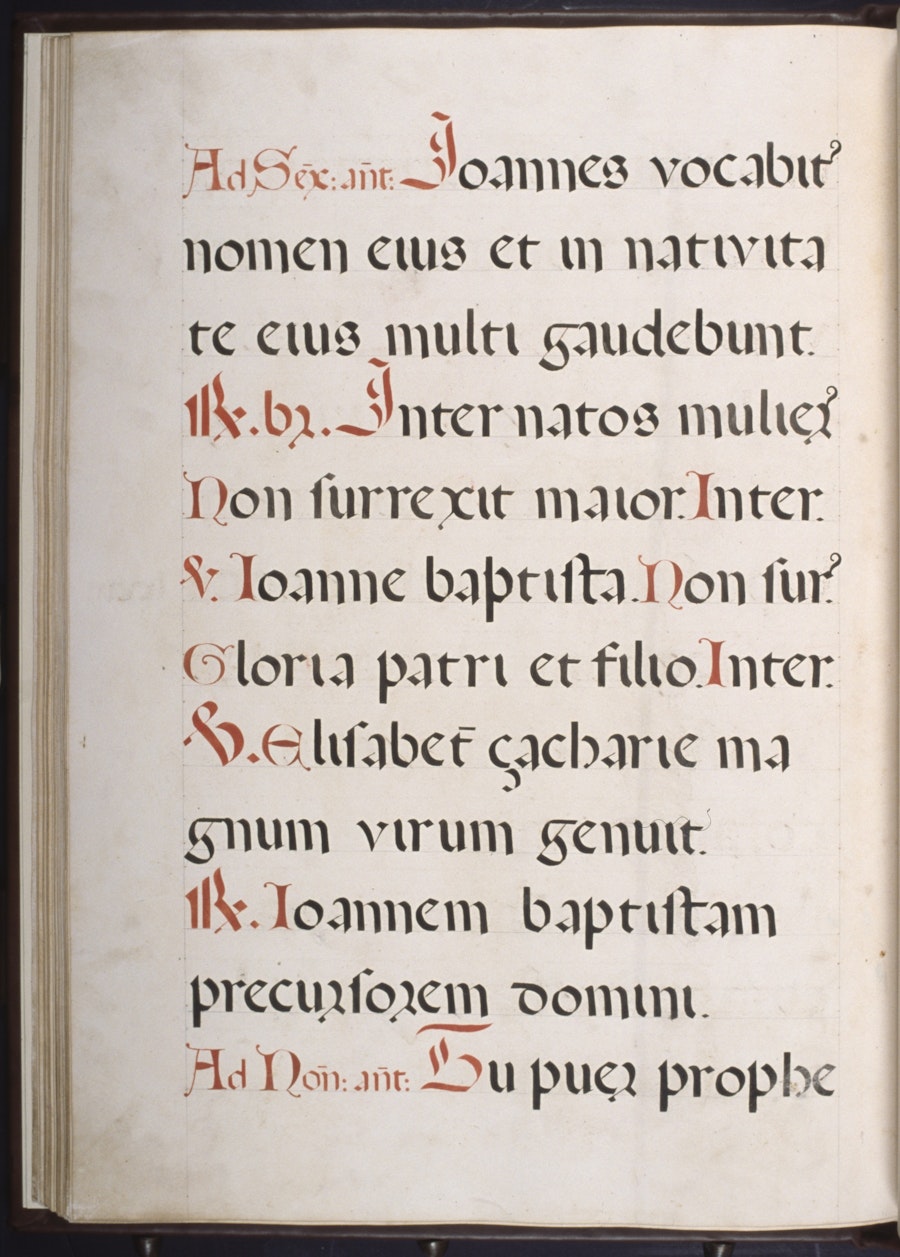 Ad Sex̄: ant̄: Ioannes vocabit᾿
nomen eius et in nativita
te eius multi gaudebunt.
℟. br. Inter natos mulieꝝ
Non ſurrexit maior. Inter.
℣. Ioanne baptiſta. Non ſur᾿.
Gloria patri et filio. Inter.
℣. Eliſabet̄ çacharie ma
gnum virum genuit.
℟. Ioannem baptiſtam
precurſorem domini.
Ad Non̄: ant̄: Tu puer prophe